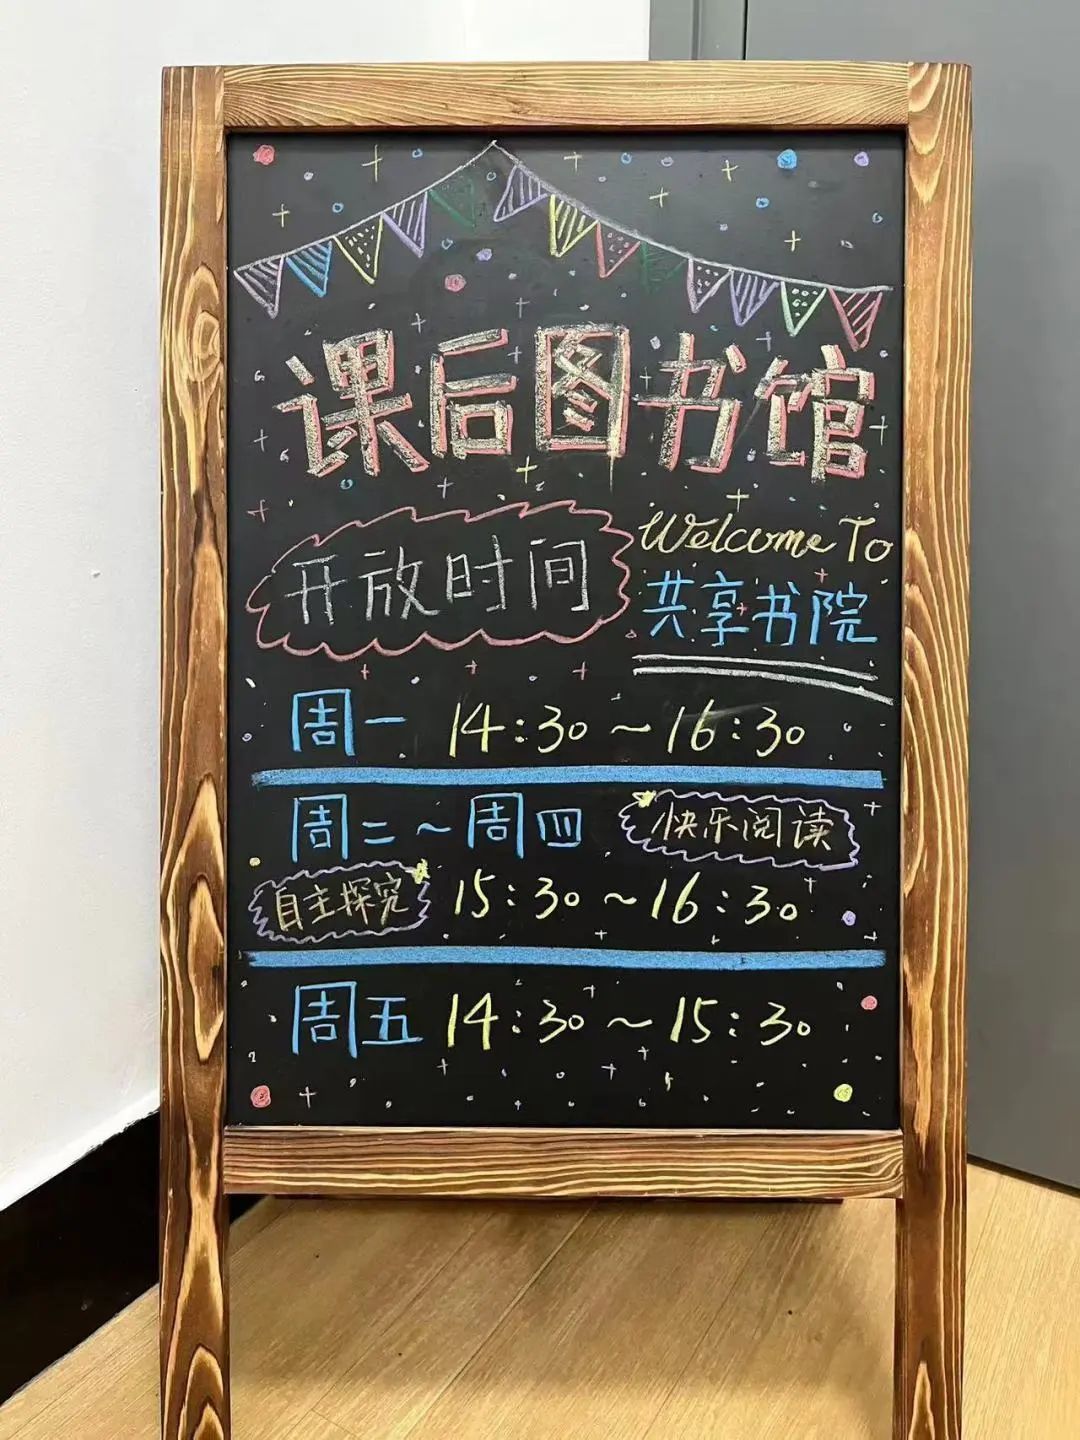 课后图书馆
开放时间
Welcome To
共享书院
周一 14:30~16:30
周二~周四 快乐阅读
自主探究 15:30~16:30
周五 14:30~15:30